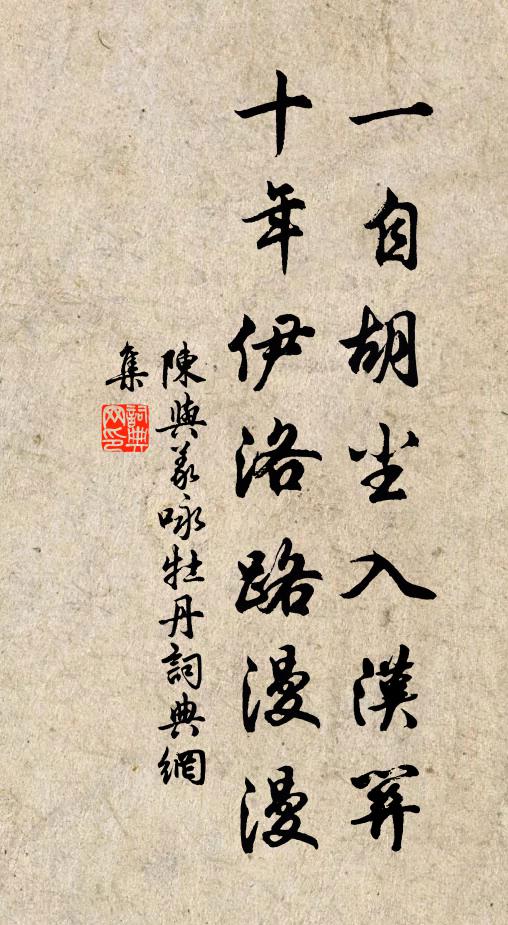 一自胡尘入漢關
十年伊洛路漫漫
陳與義咏牡丹詞典網
集
詞典
网印